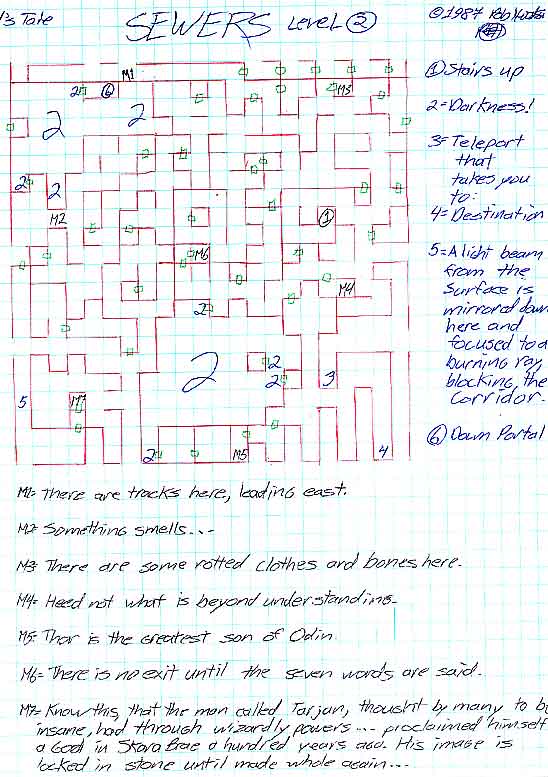 's Tale
SEWERS Level 2
©1987 Rob
M1
2 6
M3
2
2
2
2
M2
1
M6
M4
2
2
2
2
5
M7
3
2
M5
4
1 Stairs up
2=Darkness!
3=Teleport
that
takes you
to:
4=Destination
5=A light beam
from the
surface is
mirrored down
here and
focused to a
burning ray,
blocking the
corridor.
6 Down Portal
M1= There are tracks here, leading east.
M2= Something smells...
M3= There are some rotted clothes and bones here.
M4= Heed not what is beyond understanding.
M5= Thor is the greatest son of Odin.
M6= There is no exit until the seven words are said.
M7= Know this, that the man called Tarjan, thought by many to be
insane, had through wizardly powers... proclaimed himself
a God in Skara Brae a hundred years ago. His image is
locked in stone until made whole again...